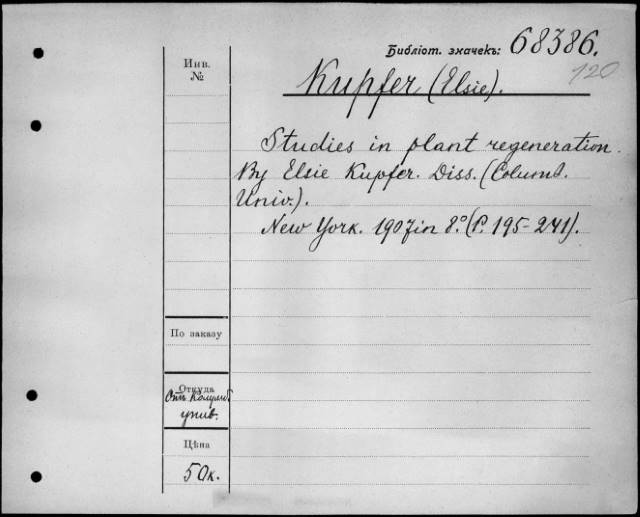 Библіот. значекъ: 68386.
120
Инв.
№
Kupfer (Elsie).
Studies in plant regeneration.
By Elsie Kupfer. Diss. (Columb.
Univ.).
New York. 1907 in 8.° (P. 195-241).
По заказу
Откуда
Отъ Колумб.
унив.
Цѣна
50к.